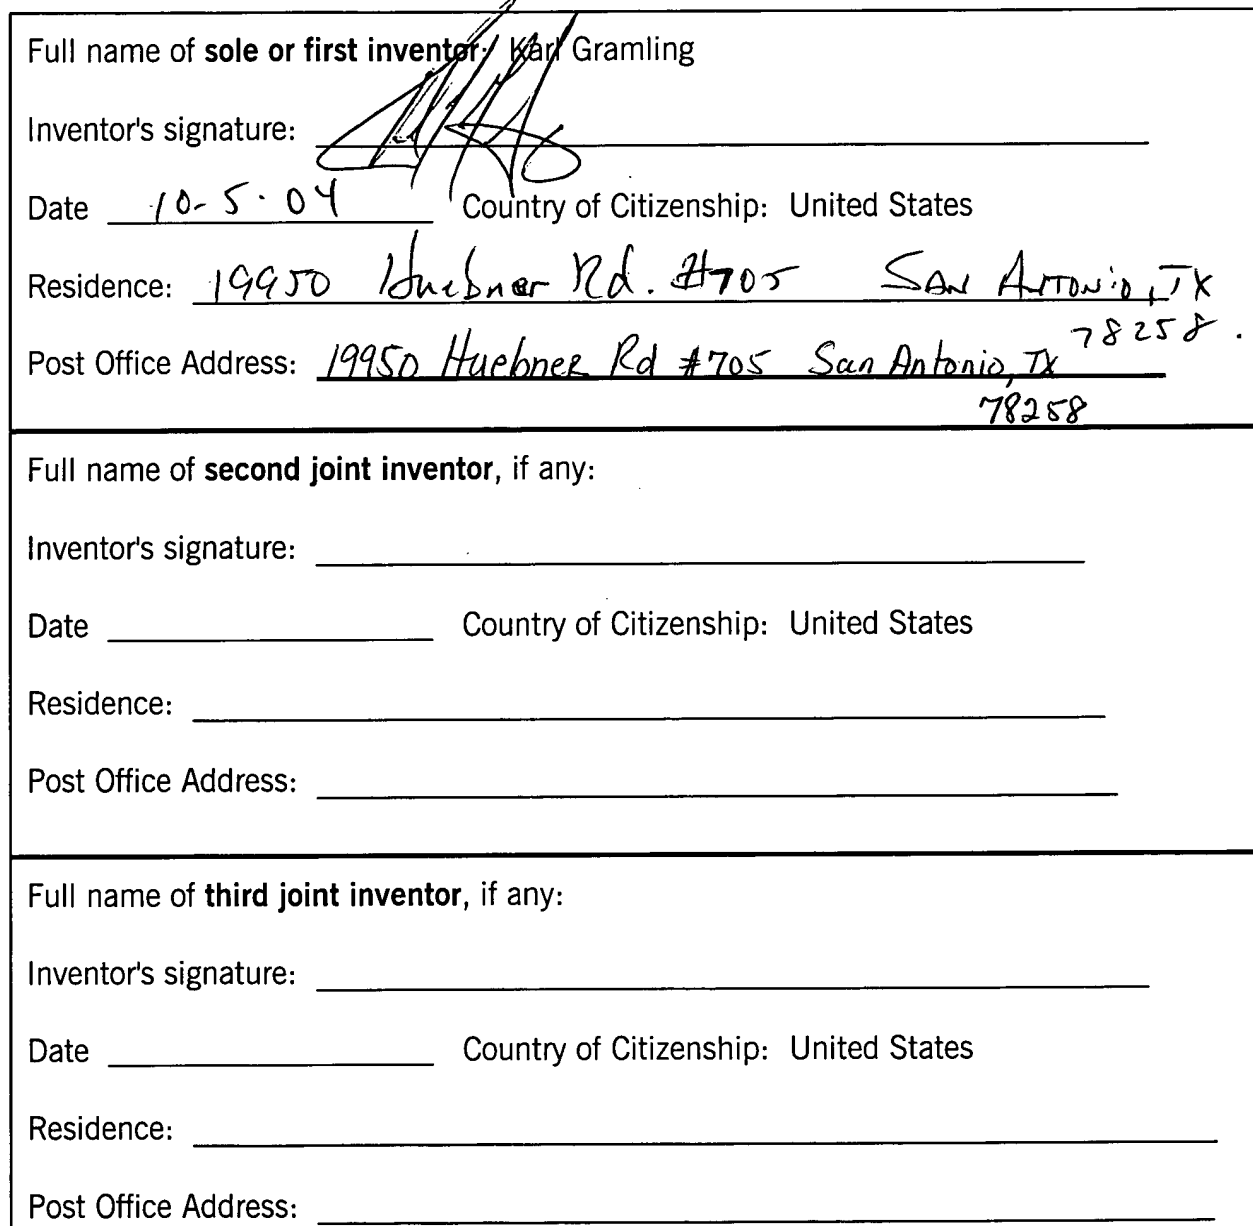 Full name of sole or first inventor: Karl Gramling
Inventor's signature:
Date 10-5-04 Country of Citizenship: United States
Residence: 19950 Huebner Rd. #705 San Antonio, TX
78258.
Post Office Address: 19950 Huebner Rd #705 San Antonio, TX
78258
Full name of second joint inventor, if any:
Inventor's signature:
Date Country of Citizenship: United States
Residence:
Post Office Address:
Full name of third joint inventor, if any:
Inventor's signature:
Date Country of Citizenship: United States
Residence:
Post Office Address: